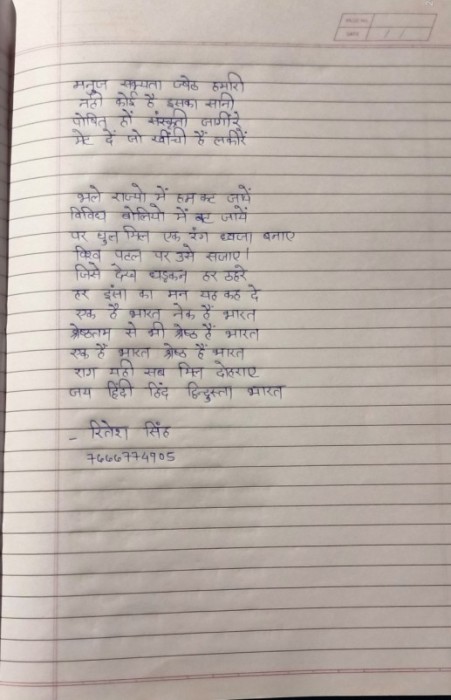 मनुज सभ्यता ज्येष्ठ हमारी
नही कोई है इसका सानी
पोषित हो संस्कृती जगीरे
मेट दें जो खींची हैं लकीरें
भले राज्यो में हम बट जायें
विविध बोलियो में बट जायें
पर घुल मिल एक रंग ध्वजा बनाए
विश्व पटल पर उसे सजाए।
जिसे देख धड़कन हर ठहरे
हर इंसा का मन यह कह दे
एक है भारत नेक हैं भारत
श्रेष्ठतम से भी श्रेष्ठ हैं भारत
एक हैं भारत श्रेष्ठ हैं भारत
राग यही सब मिल दोहराए
जय हिंदी हिंद हिन्दुस्ता भारत
- रितेश सिंह
7666774905
DATE / /